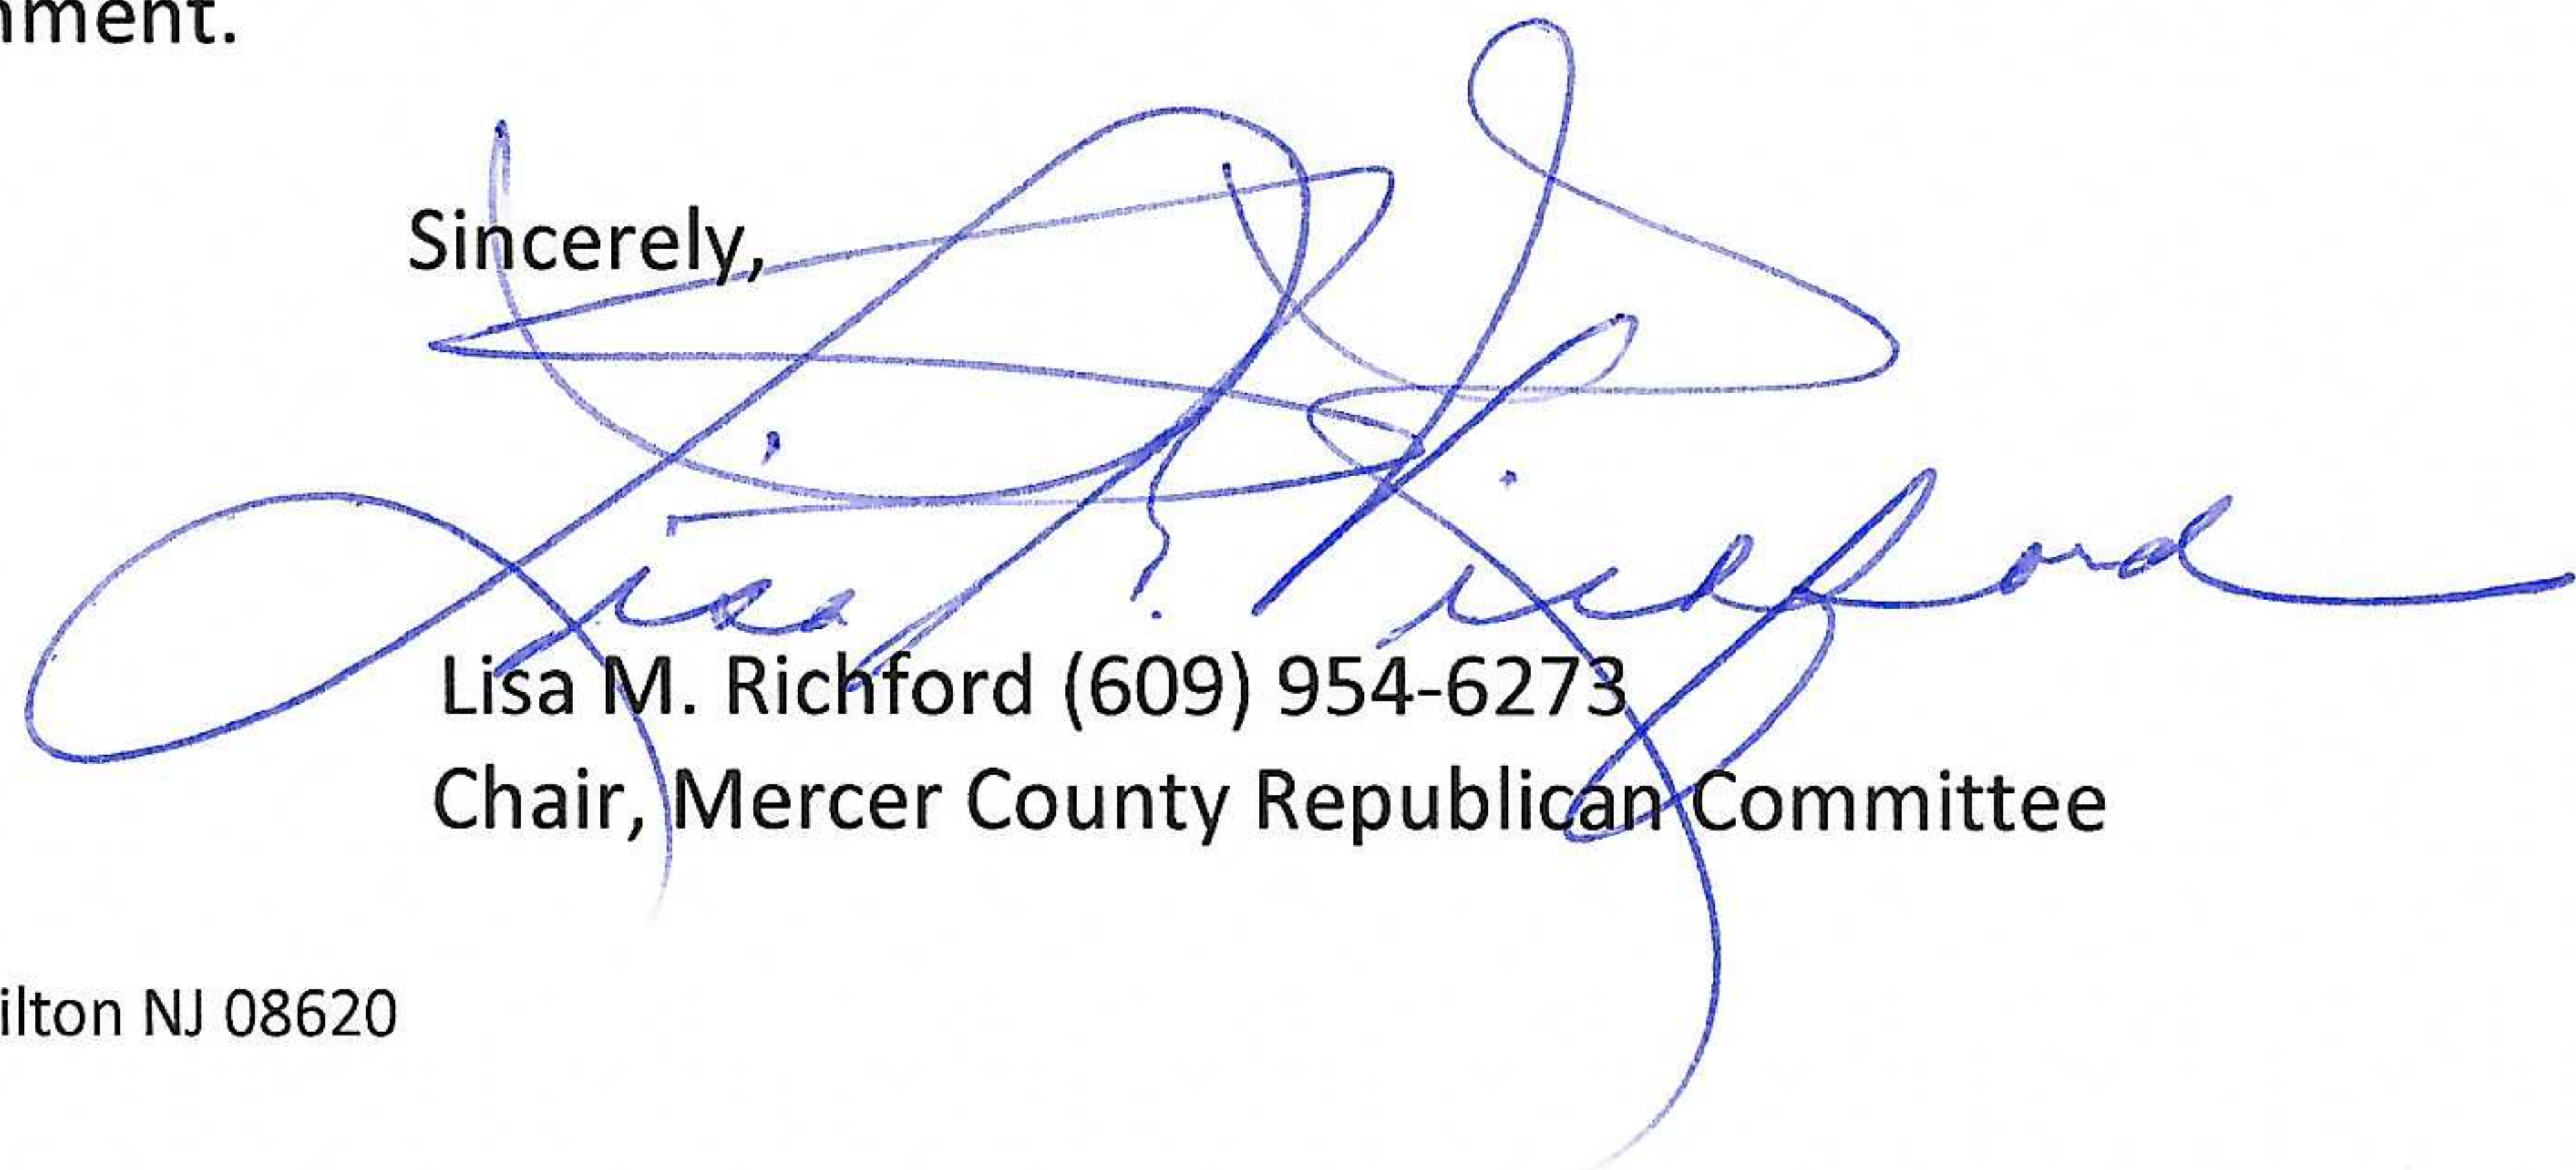 nment.
Sincerely,
Lisa M. Richford
Lisa M. Richford (609) 954-6273
Chair, Mercer County Republican Committee
ilton NJ 08620